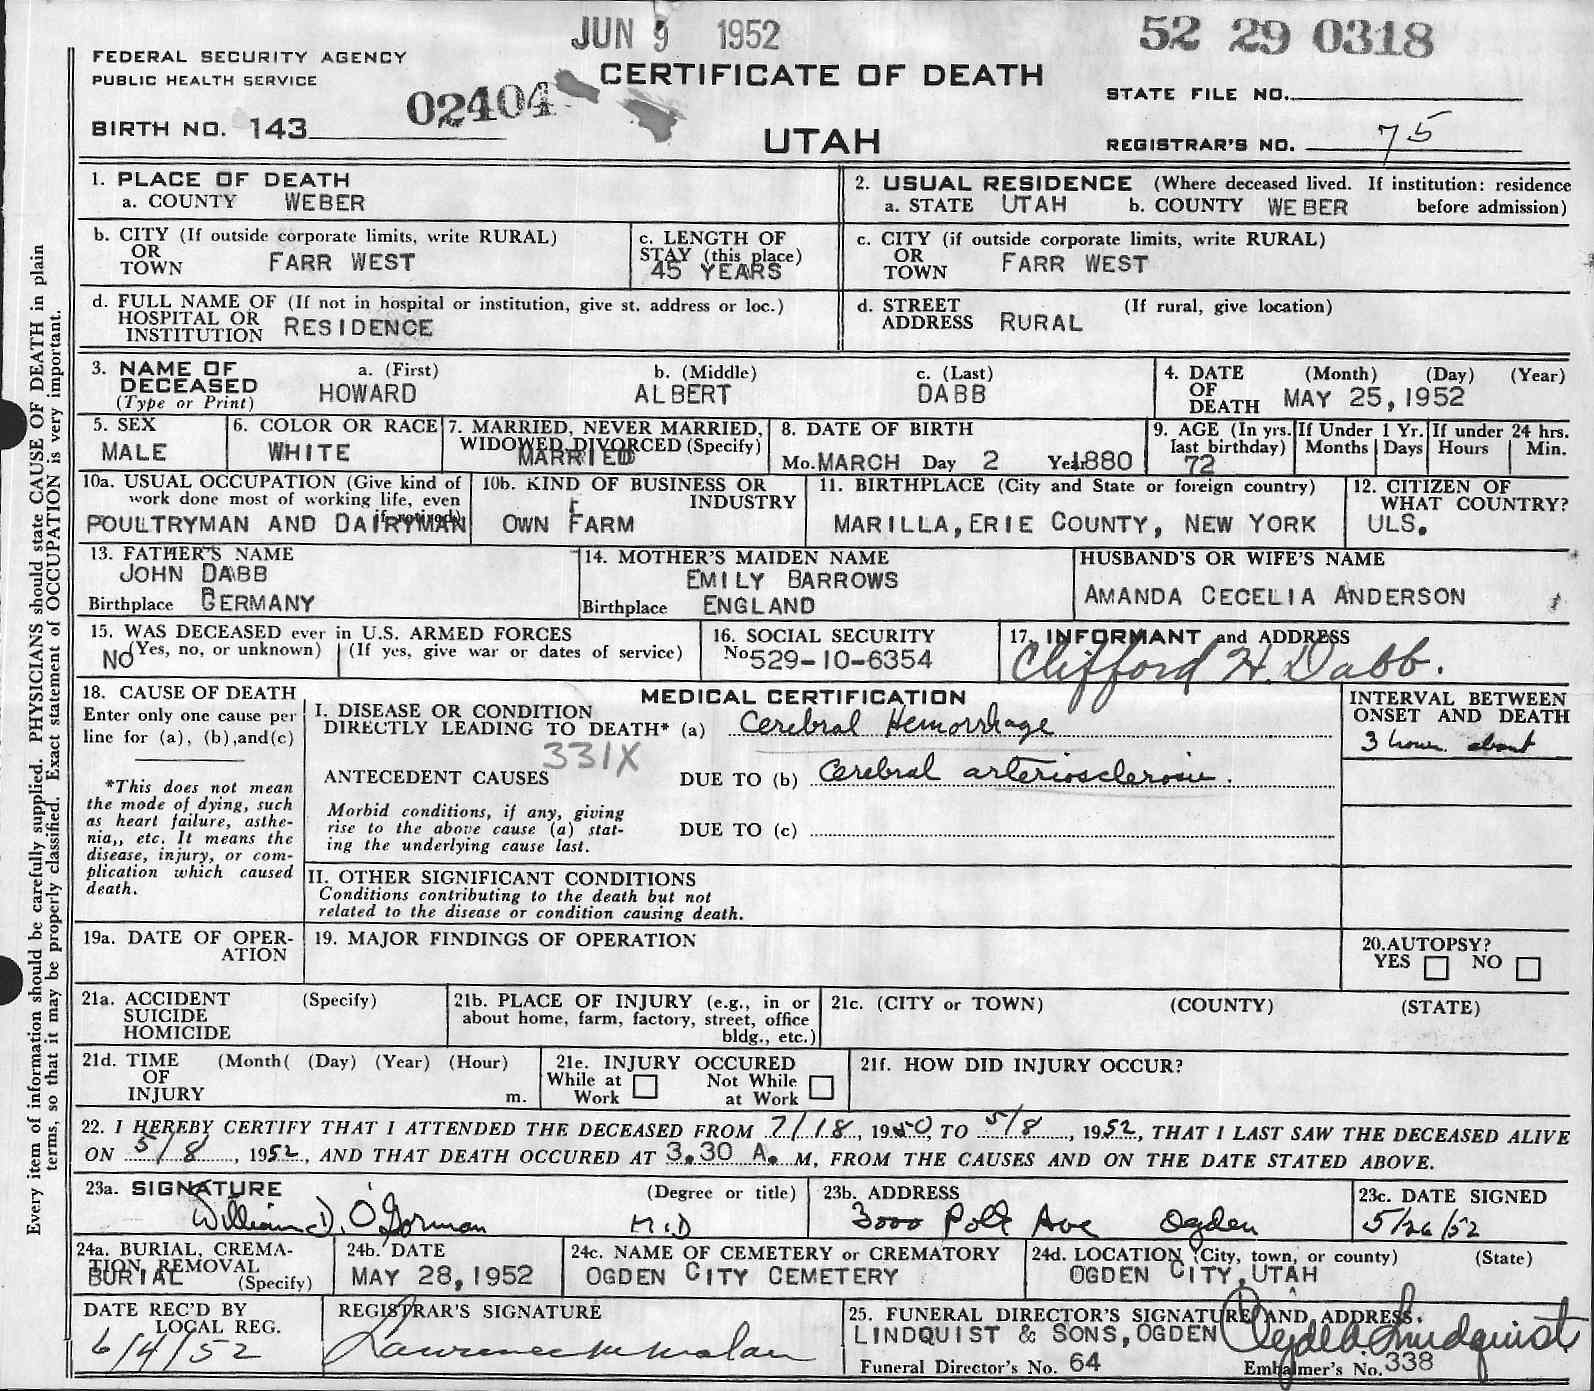 JUN 9 1952
52 29 0318
FEDERAL SECURITY AGENCY
PUBLIC HEALTH SERVICE
CERTIFICATE OF DEATH
02404
STATE FILE NO.
BIRTH NO. 143
UTAH
REGISTRAR'S NO. 75
Every item of information should be carefully supplied. PHYSICIANS should state CAUSE OF DEATH in plain
terms, so that it may be properly classified. Exact statement of OCCUPATION is very important.
1. PLACE OF DEATH
a. COUNTY WEBER
2. USUAL RESIDENCE (Where deceased lived. If institution: residence
a. STATE UTAH b. COUNTY WEBER before admission)
b. CITY (If outside corporate limits, write RURAL)
OR
TOWN FARR WEST
c. LENGTH OF
STAY (this place)
45 YEARS
c. CITY (if outside corporate limits, write RURAL)
OR
TOWN FARR WEST
d. FULL NAME OF (If not in hospital or institution, give st. address or loc.)
HOSPITAL OR
INSTITUTION RESIDENCE
d. STREET (If rural, give location)
ADDRESS RURAL
3. NAME OF a. (First) b. (Middle) c. (Last)
DECEASED HOWARD ALBERT DABB
(Type or Print)
4. DATE (Month) (Day) (Year)
OF
DEATH MAY 25, 1952
5. SEX
MALE
6. COLOR OR RACE
WHITE
7. MARRIED, NEVER MARRIED,
WIDOWED, DIVORCED (Specify)
MARRIED
8. DATE OF BIRTH
Mo. MARCH Day 2 Year 1880
9. AGE (In yrs.
last birthday)
72
If Under 1 Yr.
Months Days
If under 24 hrs.
Hours Min.
10a. USUAL OCCUPATION (Give kind of
work done most of working life, even
if retired)
POULTRYMAN AND DAIRYMAN
10b. KIND OF BUSINESS OR
INDUSTRY
OWN FARM
11. BIRTHPLACE (City and State or foreign country)
MARILLA, ERIE COUNTY, NEW YORK
12. CITIZEN OF
WHAT COUNTRY?
ULS.
13. FATHER'S NAME
JOHN DABB
Birthplace GERMANY
14. MOTHER'S MAIDEN NAME
EMILY BARROWS
Birthplace ENGLAND
HUSBAND'S OR WIFE'S NAME
AMANDA CECELIA ANDERSON
15. WAS DECEASED ever in U.S. ARMED FORCES
(Yes, no, or unknown) (If yes, give war or dates of service)
NO
16. SOCIAL SECURITY
No. 529-10-6354
17. INFORMANT and ADDRESS
Clifford H. Dabb.
18. CAUSE OF DEATH
Enter only one cause per
line for (a), (b),and(c)
*This does not mean
the mode of dying, such
as heart failure, asthe-
nia,, etc. It means the
disease, injury, or com-
plication which caused
death.
MEDICAL CERTIFICATION
I. DISEASE OR CONDITION
DIRECTLY LEADING TO DEATH* (a) Cerebral Hemorrhage
331X
ANTECEDENT CAUSES DUE TO (b) Cerebral arteriosclerosis.
Morbid conditions, if any, giving
rise to the above cause (a) stat-
ing the underlying cause last.
DUE TO (c)
INTERVAL BETWEEN
ONSET AND DEATH
3 hours about
II. OTHER SIGNIFICANT CONDITIONS
Conditions contributing to the death but not
related to the disease or condition causing death.
19a. DATE OF OPER-
ATION
19. MAJOR FINDINGS OF OPERATION
20. AUTOPSY?
YES NO
21a. ACCIDENT (Specify)
SUICIDE
HOMICIDE
21b. PLACE OF INJURY (e.g., in or
about home, farm, factory, street, office
bldg., etc.)
21c. (CITY or TOWN) (COUNTY) (STATE)
21d. TIME (Month( (Day) (Year) (Hour)
OF
INJURY m.
21e. INJURY OCCURED
While at Work Not While at Work
21f. HOW DID INJURY OCCUR?
22. I HEREBY CERTIFY THAT I ATTENDED THE DECEASED FROM 7/18, 1950, TO 5/8, 1952, THAT I LAST SAW THE DECEASED ALIVE
ON 5/8, 1952, AND THAT DEATH OCCURED AT 3.30 A. M, FROM THE CAUSES AND ON THE DATE STATED ABOVE.
23a. SIGNATURE (Degree or title)
William D. O'Gorman M.D
23b. ADDRESS
3000 Polk Ave Ogden
23c. DATE SIGNED
5/26/52
24a. BURIAL, CREMA-
TION, REMOVAL
BURIAL (Specify)
24b. DATE
MAY 28, 1952
24c. NAME OF CEMETERY OR CREMATORY
OGDEN CITY CEMETERY
24d. LOCATION (City, town, or county) (State)
OGDEN CITY, UTAH
DATE REC'D BY
LOCAL REG.
6/4/52
REGISTRAR'S SIGNATURE
Lawrence M Malan
25. FUNERAL DIRECTOR'S SIGNATURE AND ADDRESS.
LINDQUIST & SONS, OGDEN Clyde Lindquist
Funeral Director's No. 64 Embalmer's No. 338